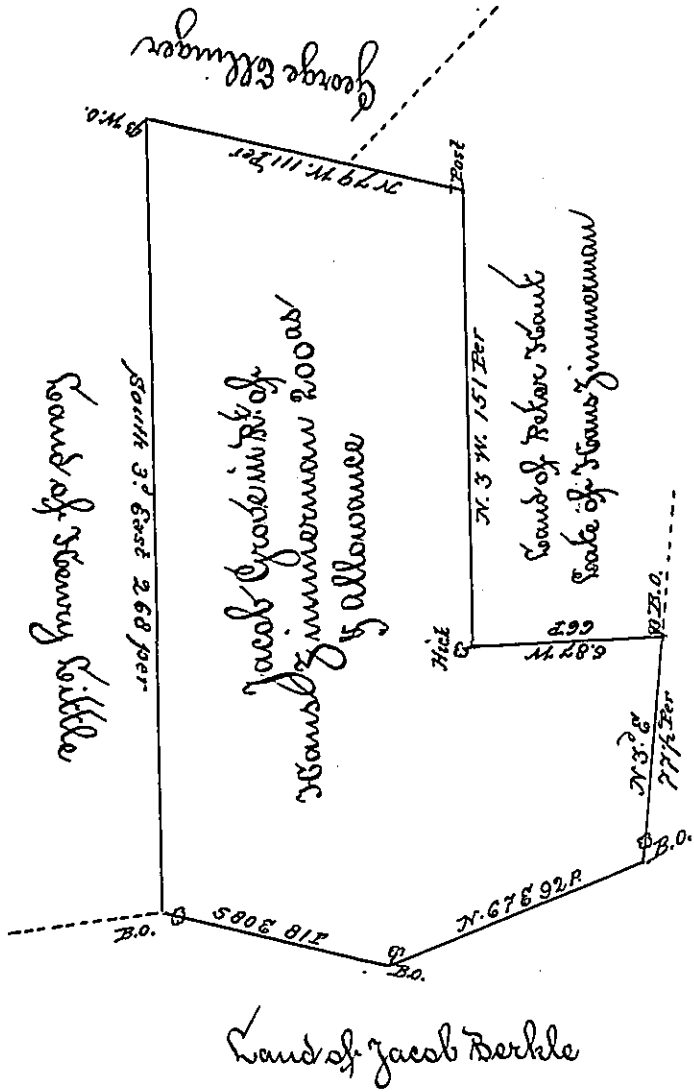 George Ellinger
W.O.
N 79 W. 111 Per
Post
Land of Henry Little
South 3.d East 268 per
Jacob Grove in R. of
Hans Zimmerman 200 as
& allowance
N. 3 W. 151 Per
Land of Peter Haut
Late of Hans Zimmerman
Hick
S.87 W
66 P
B.O.
N 3.d E
77 1/2 Per
B.O.
N. 67 E 92 P.
B.O.
S 80 E 81 P
B.O.
Land of Jacob Berkle